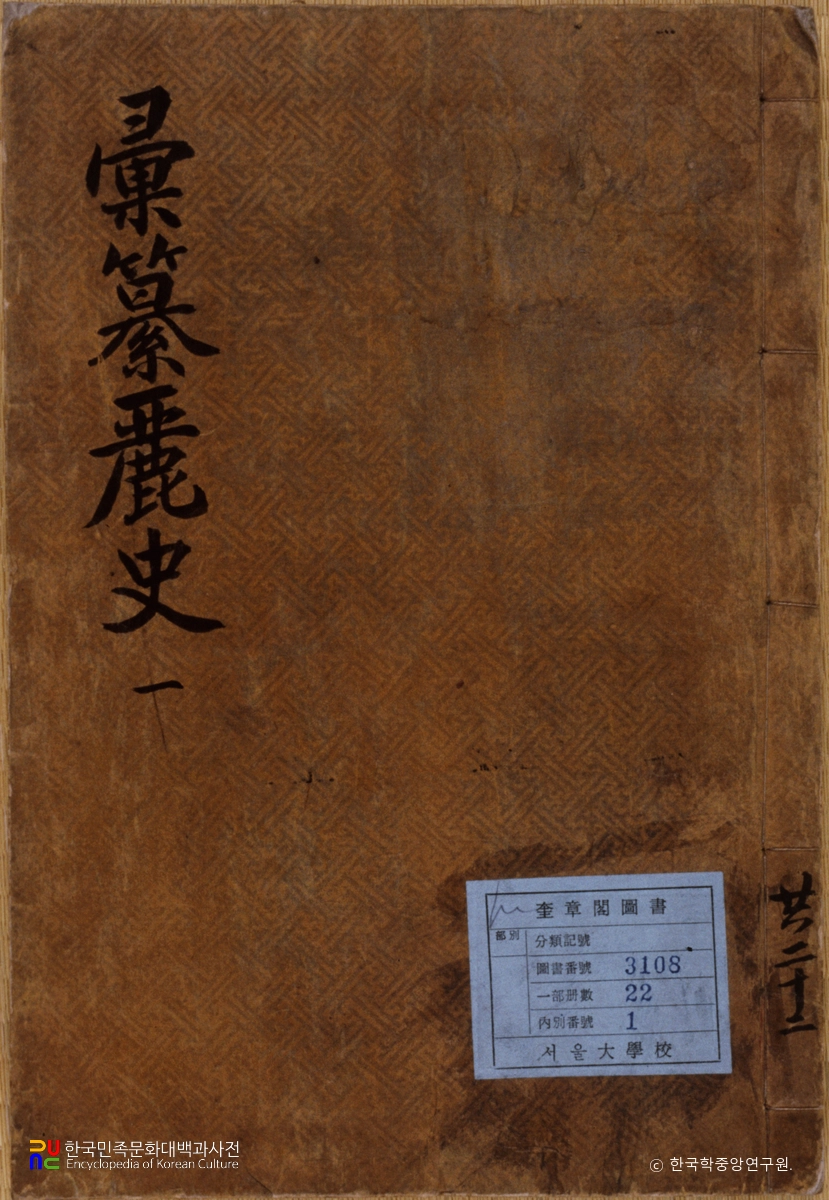 彙纂麗史 一
共二十二
奎章閣圖書
部別
分類記號
圖書番號 3108
一部册數 22
內別番號 1
서울大學校
한국민족문화대백과사전
Encyclopedia of Korean Culture
© 한국학중앙연구원.